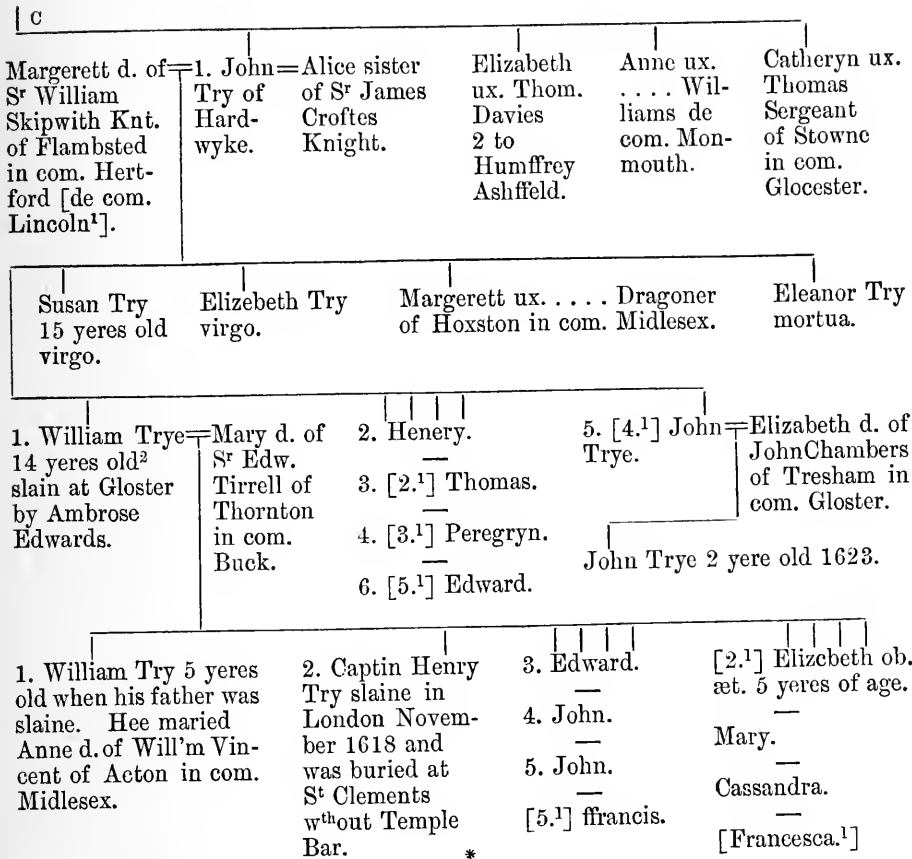 C
Margerett d. of
Sʳ William
Skipwith Knt.
of Flambsted
in com. Hert-
ford [de com.
Lincoln¹].
1. John
Try of
Hard-
wyke.
Alice sister
of Sʳ James
Croftes
Knight.
Elizabeth
ux. Thom.
Davies
2 to
Humffrey
Ashffeld.
Anne ux.
. . . . Wil-
liams de
com. Mon-
mouth.
Catheryn ux.
Thomas
Sergeant
of Stowne
in com.
Glocester.
Susan Try
15 yeres old
virgo.
Elizebeth Try
virgo.
Margerett ux. . . . . Dragoner
of Hoxston in com. Midlesex.
Eleanor Try
mortua.
1. William Trye
14 yeres old²
slain at Gloster
by Ambrose
Edwards.
Mary d. of
Sʳ Edw.
Tirrell of
Thornton
in com.
Buck.
2. Henery.
—
3. [2.¹] Thomas.
—
4. [3.¹] Peregryn.
—
6. [5.¹] Edward.
5. [4.¹] John
Trye.
Elizabeth d. of
John Chambers
of Tresham in
com. Gloster.
John Trye 2 yere old 1623.
1. William Try 5 yeres
old when his father was
slaine. Hee maried
Anne d. of Will'm Vin-
cent of Acton in com.
Midlesex.
2. Captin Henry
Try slaine in
London Novem-
ber 1618 and
was buried at
Sᵗ Clements
wᵗʰout Temple
Bar.
*
3. Edward.
—
4. John.
—
5. John.
—
[5.¹] ffrancis.
[2.¹] Elizebeth ob.
æt. 5 yeres of age.
—
Mary.
—
Cassandra.
—
[Francesca.¹]